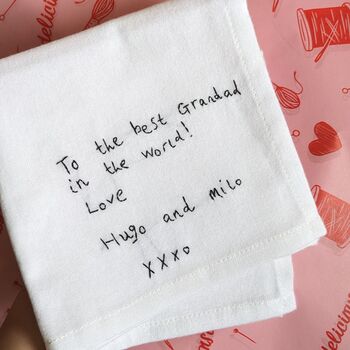 To the best Grandad
in the world!
Love
Hugo and milo
xxxo